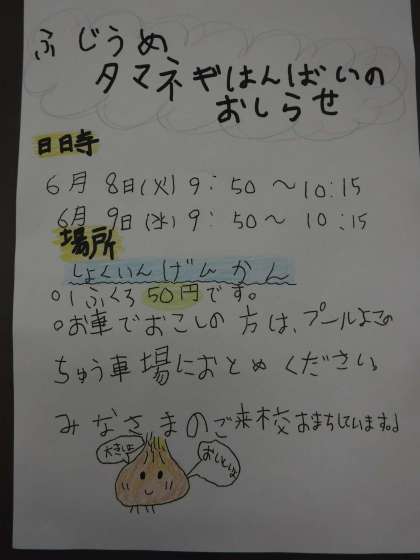 ふじうめ
タマネギはんばいの
おしらせ
日時
6月 8日(火) 9:50〜10:15
6月 9日(水) 9:50〜10:15
場所
しょくいんげんかん
○1ふくろ50円です。
○お車でおこしの方は、プールよこの
ちゅう車場におとめください。
みなさまのご来校おまちしています♩
大きいよ
おいしいよ